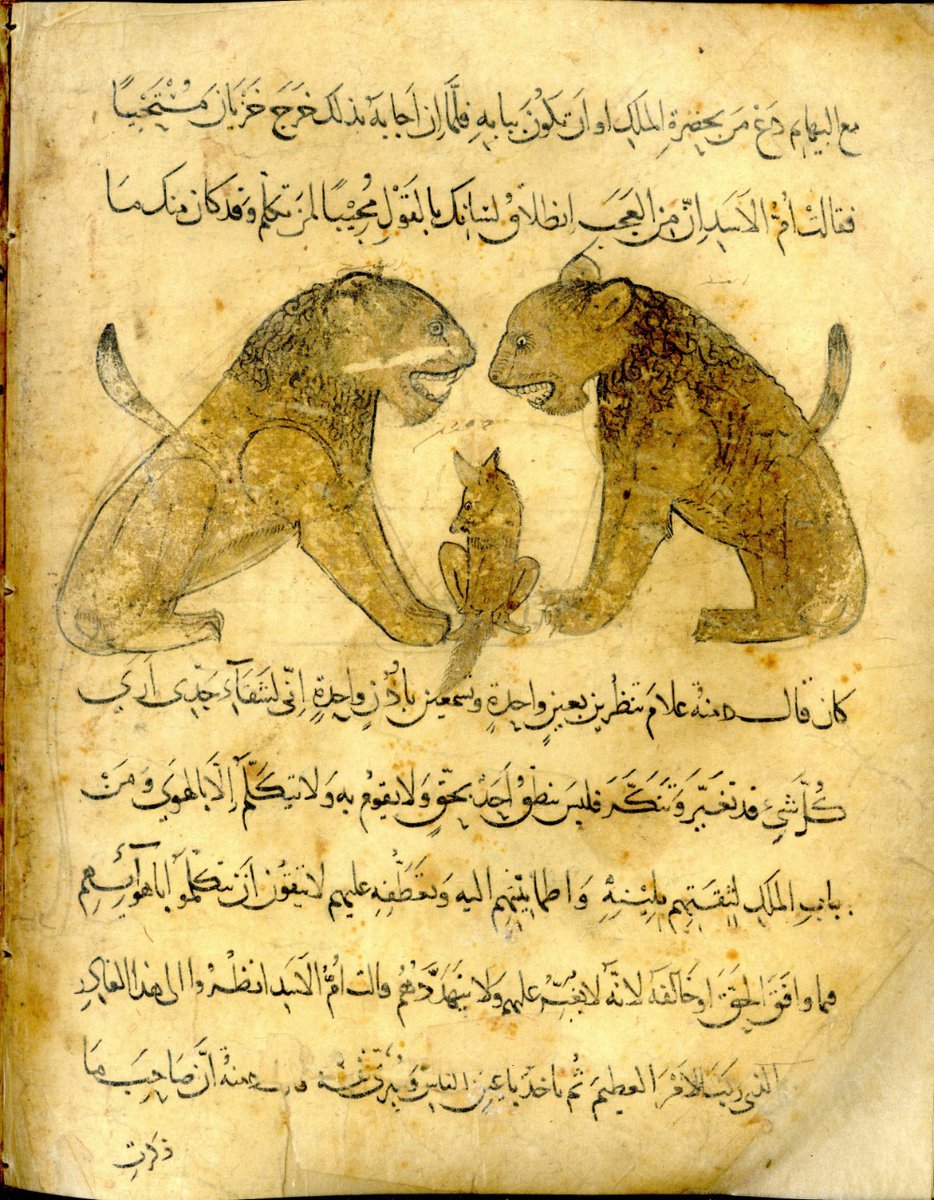 مع البهايم دَعْ مَن بحضرةِ الملَكِ او ان تكونَ ببابهِ فلَمَّا اِن اَجابهُ بذلك خرَجَ خَزيانَ مُسْتَحيِيًا
فقالتْ أمّ الاسَدِ اِنّ مِن العجَبِ انطلاقُ لسَانِك بالقَوْلِ مُجيبًا لمَن تكلّم وقد كان منك ما
كان قال دمنة علامَ تنظُرين بعَينٍ واحدةٍ وتسمعين باُذُنٍ واحِدةٍ اِنّي لشقآءِ جَدِّى اَرَى
كُلَّ شَيْءٍ قد تغيَّر وَتَنَكَّرَ فليسَ ينطقُ اَحَدٌ بحَقٍّ وَلا يقومُ به وَلا يتكلّمُ اِلّا بالهوَى وَمَنْ
بباب الملَكِ لثقتِهم بلِيْنِهِ وَاطمانِيْنَتِهم اليه وَتعَطُّفِهِ عليهم لا يتّقون اَنْ يتكَلّموا باهوآئِهم
فيما وافقَ الحَقَّ او خَالفَهُ لانّه لا يُغيّرُ عليهم ولا يتهدَّدُهُم قالت اُمُّ الاسَدِ انظُرُوا الى هذا الفاجر
الذى ركبَ الامْرَ العظيمَ ثُم ياخذُ باعيُنِ الناسِ وَيُبَرّئُ نفسَهُ قال دمنةُ اِنَّ صَاحِبَ ما
ذكرتِ